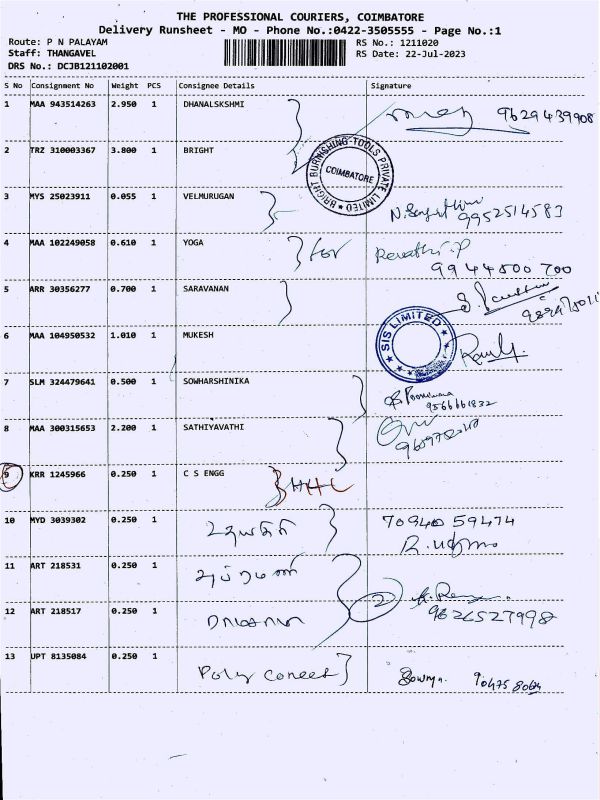 THE PROFESSIONAL COURIERS, COIMBATORE
Delivery Runsheet - MO - Phone No.:0422-3505555 - Page No.:1
Route: P N PALAYAM RS No.: 1211020
Staff: THANGAVEL RS Date: 22-Jul-2023
DRS No.: DCJB121102001
S No Consignment No Weight PCS Consignee Details Signature
1 MAA 943514263 2.950 1 DHANALSKSHMI 9629439908
2 TRZ 310003367 3.800 1 BRIGHT
BRIGHT BURNISHING TOOLS PRIVATE LIMITED
COIMBATORE
3 MYS 25023911 0.055 1 VELMURUGAN
9952514583
4 MAA 102249058 0.610 1 YOGA for Revathi.P
9944800700
5 ARR 30356277 0.700 1 SARAVANAN
SIS LIMITED
6 MAA 104950532 1.010 1 MUKESH
7 SLM 324479641 0.500 1 SOWHARSHINIKA
9566661832
8 MAA 300315653 2.200 1 SATHIYAVATHI
9 KRR 1245966 0.250 1 C S ENGG
10 MYD 3039302 0.250 1 உதயகீதி 70940 59474
11 ART 218531 0.250 1
12 ART 218517 0.250 1 2 9626527998
13 UPT 8135084 0.250 1 Poly coneet Sowmya.